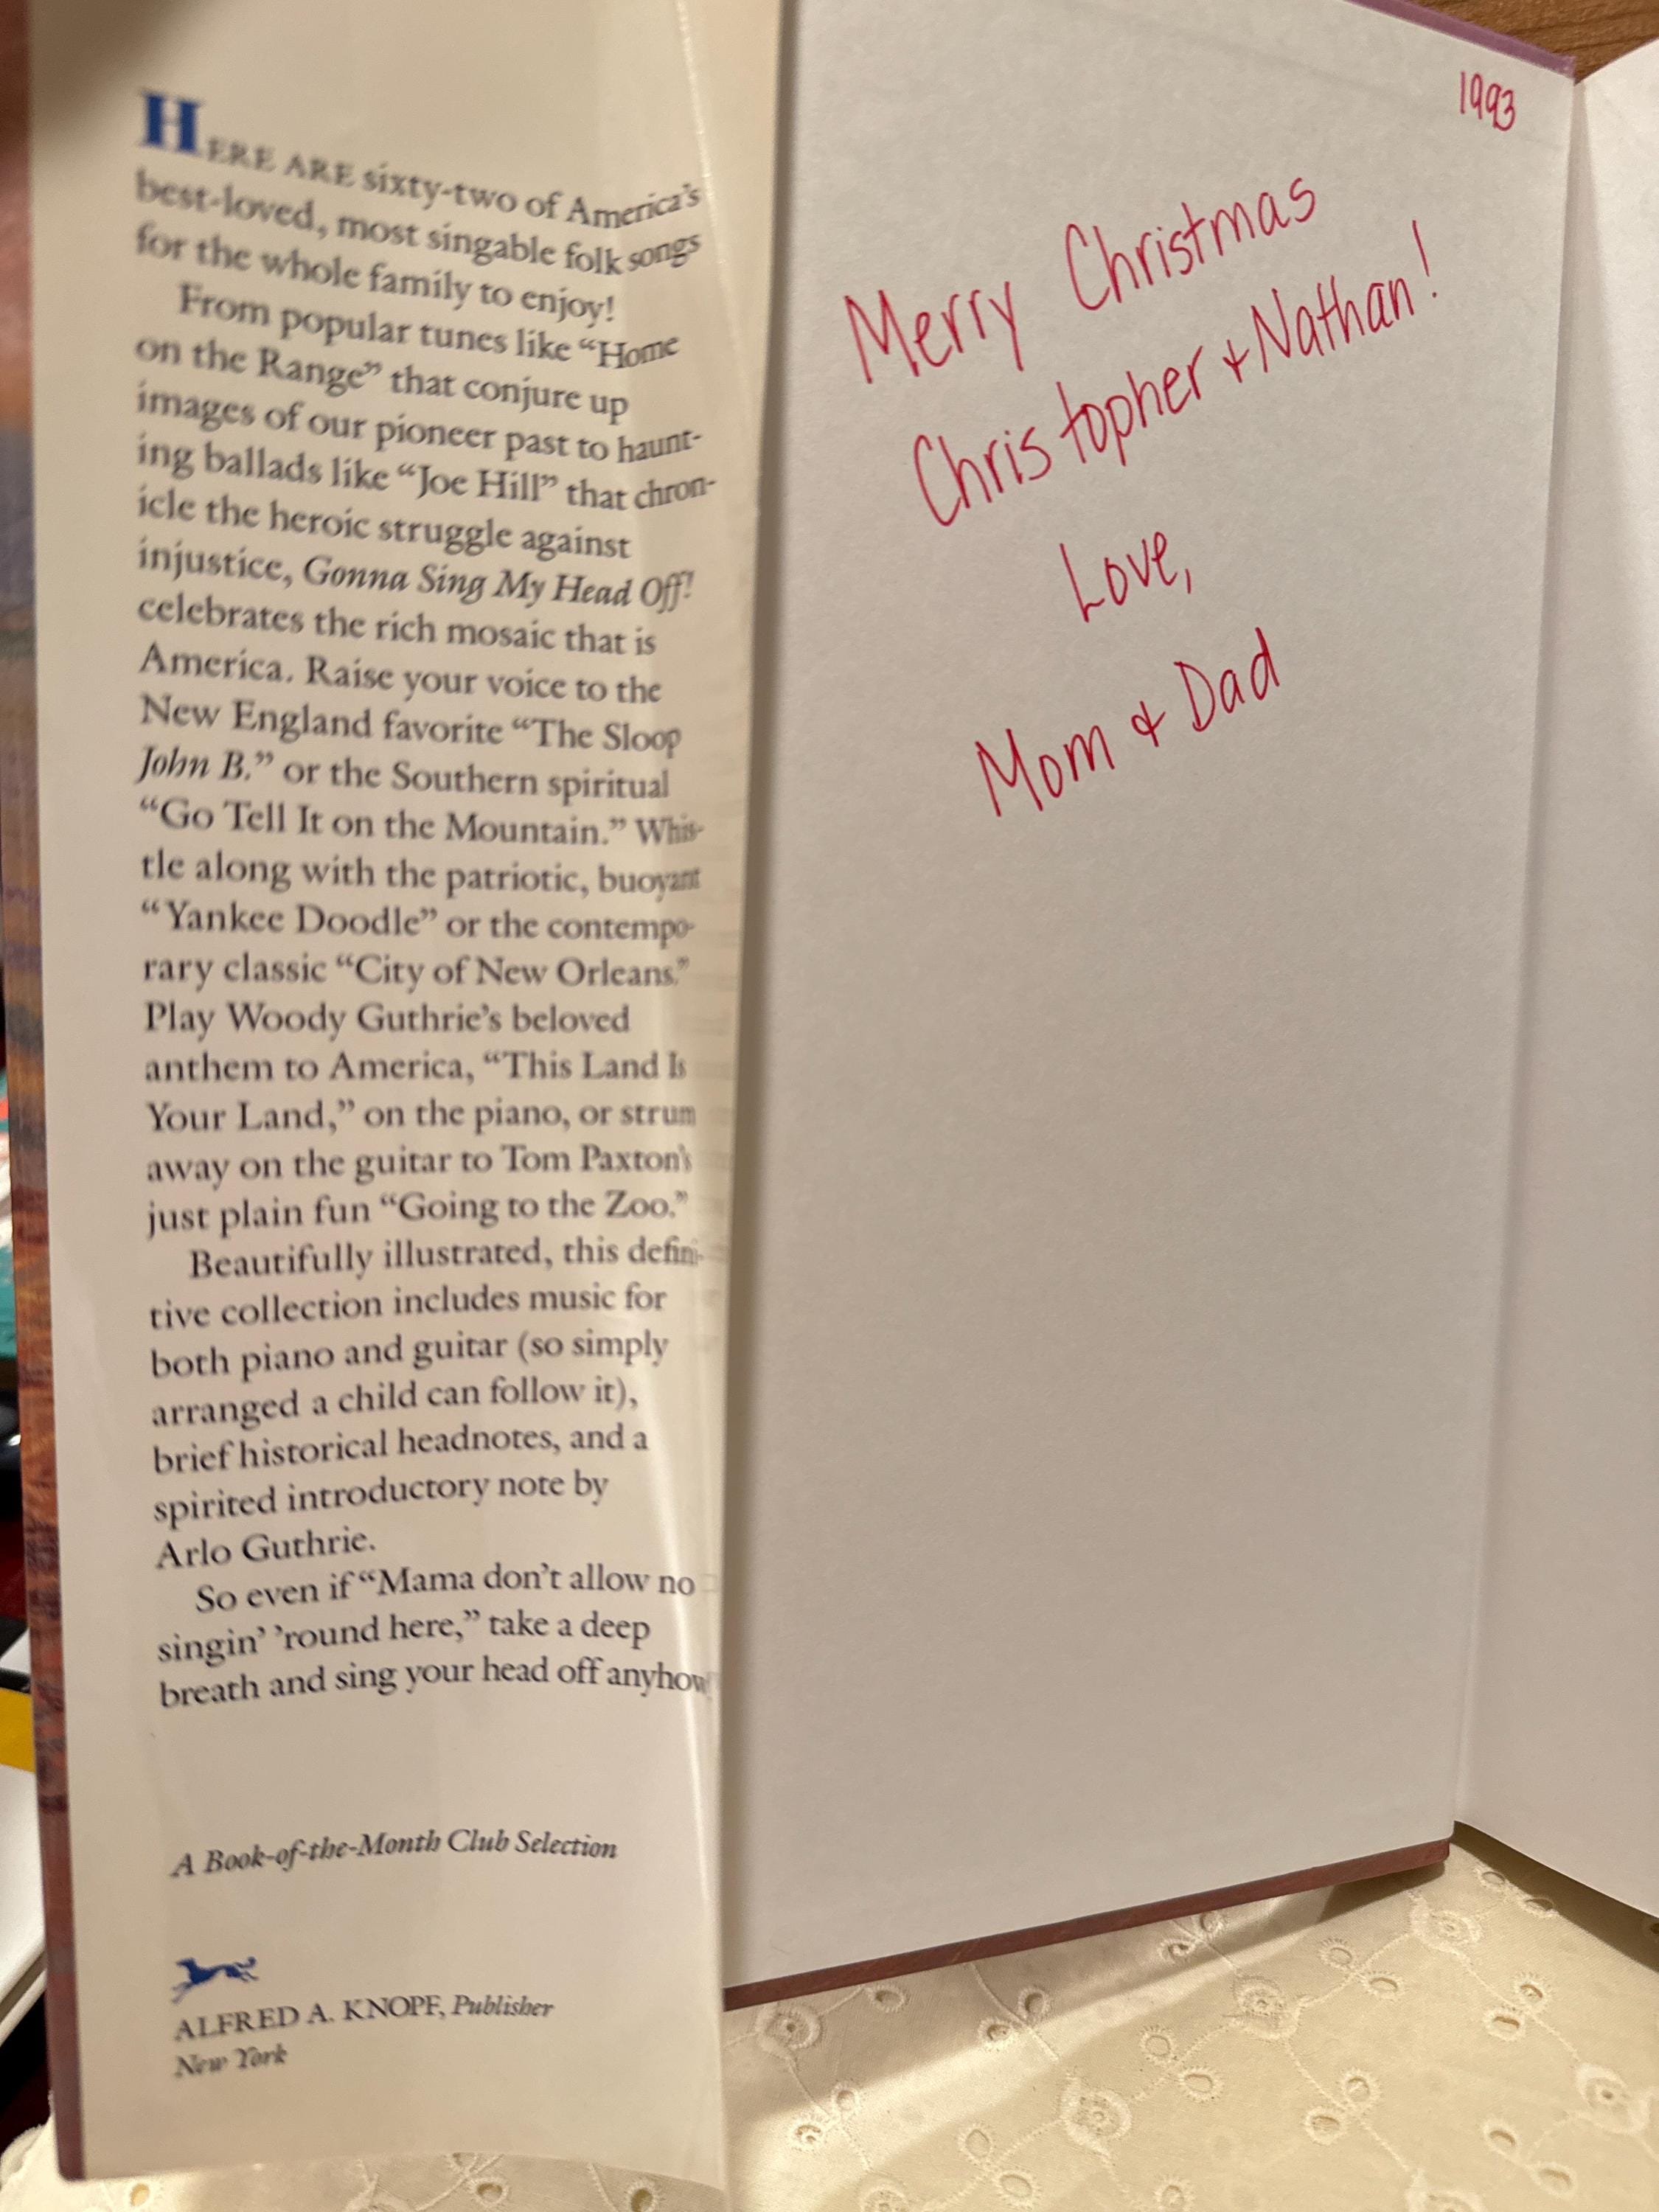 HERE ARE sixty-two of America's
best-loved, most singable folk songs
for the whole family to enjoy!
From popular tunes like “Home
on the Range” that conjure up
images of our pioneer past to haunt-
ing ballads like “Joe Hill” that chron-
icle the heroic struggle against
injustice, Gonna Sing My Head Off!
celebrates the rich mosaic that is
America. Raise your voice to the
New England favorite “The Sloop
John B.” or the Southern spiritual
“Go Tell It on the Mountain.” Whis-
tle along with the patriotic, buoyant
“Yankee Doodle” or the contempo-
rary classic “City of New Orleans.”
Play Woody Guthrie's beloved
anthem to America, “This Land Is
Your Land,” on the piano, or strum
away on the guitar to Tom Paxton's
just plain fun “Going to the Zoo.”
Beautifully illustrated, this defini-
tive collection includes music for
both piano and guitar (so simply
arranged a child can follow it),
brief historical headnotes, and a
spirited introductory note by
Arlo Guthrie.
So even if “Mama don't allow no
singin' 'round here,” take a deep
breath and sing your head off anyhow
A Book-of-the-Month Club Selection
ALFRED A. KNOPF, Publisher
New York
1993
Merry Christmas
Christopher + Nathan!
Love,
Mom & Dad